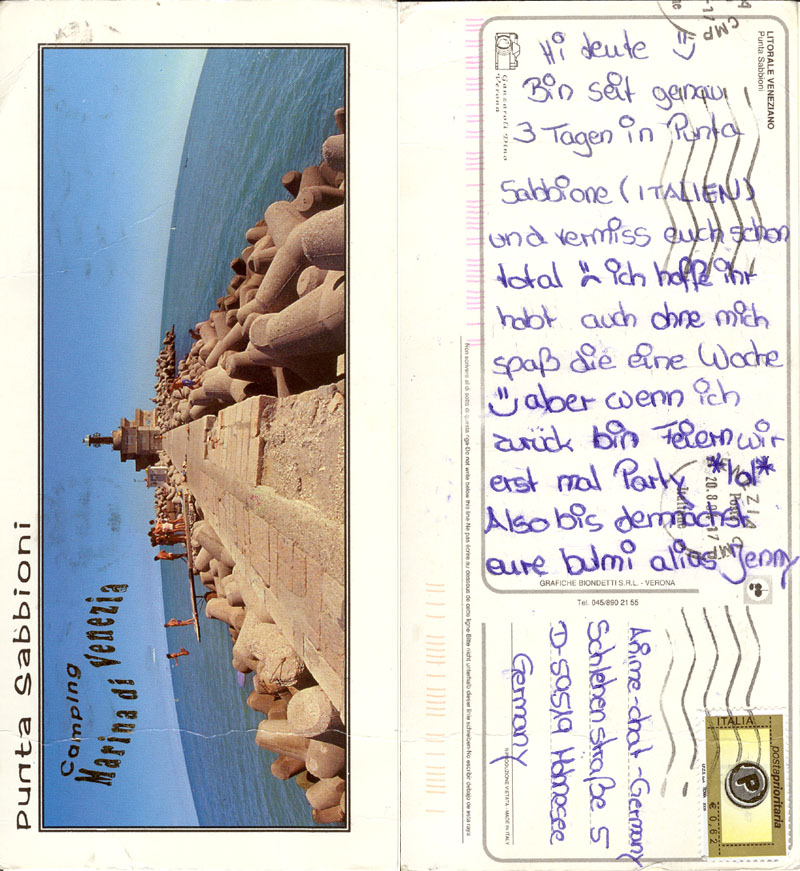 Punta Sabbioni
Camping
Marina di Venezia
LITORALE VENEZIANO
Punta Sabbioni
Ganzaroli Dino
Verona
Hi Leute =)
Bin seit genau
3 Tagen in Punta
Sabbione (ITALIEN)
und vermiss euch schon
total =( ich hoffe ihr
habt auch ohne mich
spaß die eine Woche
=) aber wenn ich
zurück bin Feiern wir
erst mal Party *lol*
Also bis demnächst
eure bulmi alias Jenny
GRAFICHE BIONDETTI S.R.L. - VERONA
Tel. 045/890 21 55
Non scrivere al di sotto di questa riga-Do not write below this line-Ne pas écrire au dessous de cette ligne-Bitte nicht unterhalb dieser linie schreiben-No escribir debajo de esta raya
Anime-chat-Germany
Schlehenstraße 5
D-59519 Möhnesee
Germany
RIPRODUZIONE VIETATA - MADE IN ITALY
ITALIA
postaprioritaria
P
€ 0,62
CMP
20.8.
CMP